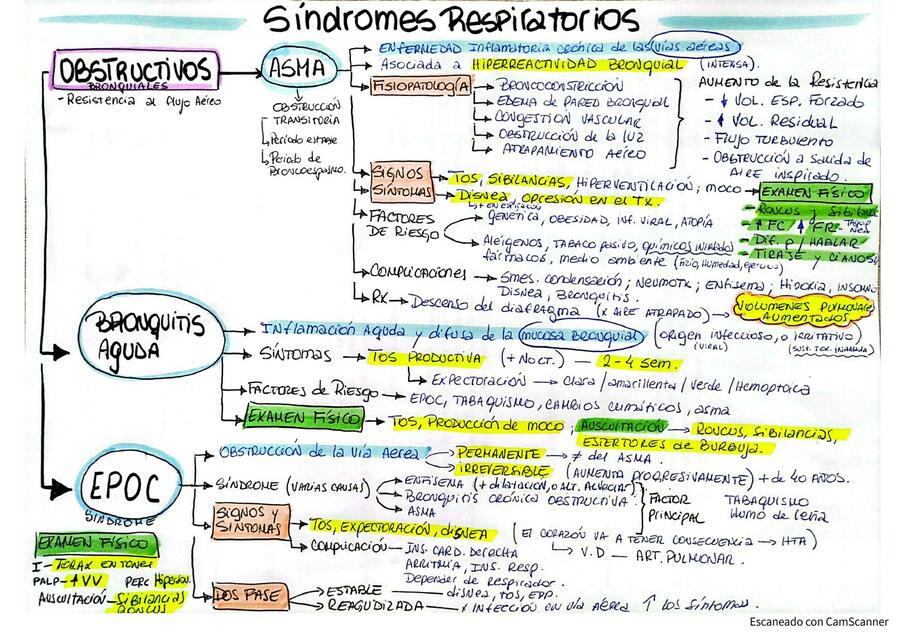 Síndromes Respiratorios
OBSTRUCTIVOS
BRONQUIALES
- Resistencia al flujo Aéreo
ASMA
OBSTRUCCIÓN
TRANSITORIA
Periodo estable
Periodo de
Broncoespasmo.
ENFERMEDAD Inflamatoria crónica de las vías aéreas
Asociada a HIPERREACTIVIDAD BRONQUIAL (INTENSA).
FISIOPATOLOGÍA
BRONCOCONSTRICCIÓN
EDEMA DE PARED BRONQUIAL
CONGESTIÓN VASCULAR
OBSTRUCCIÓN de la LUZ
ATRAPAMIENTO AÉREO
AUMENTO de la Resistencia
- ↓ VOL. ESP. FORZADO
- ↑ VOL. Residual
- Flujo TURBULENTO
- OBSTRUCCIÓN A SALIDA de
AIRE INSPIRADO.
SIGNOS
SÍNTOMAS
TOS, SIBILANCIAS, HIPERVENTILACIÓN; MOCO
Disnea, OPRESIÓN en el TX.
+ en espiración
EXAMEN FÍSICO
- RONCUS y Sibilan
- ↑ FC / ↑ FR -
- Dif. p/ HABLAR
- TIRAJE y CIANOSI
FACTORES
DE RIESGO
Genética, OBESIDAD, INF. VIRAL, ATOPÍA
Alérgenos, TABACO pasivo, químicos inhalados
fármacos, medio ambiente (Frío, Humedad, ejercicio)
COMPLICACIONES
Smes. condensación; NEUMOTX; ENFISEMA; Hipoxia, INSOMNIO
DISNEA, BRONQUITIS.
RX
Descenso del diafragma (X AIRE ATRAPADO)
VOLUMENES PULMONARES
AUMENTADOS
BRONQUITIS
AGUDA
INFlamación Aguda y difusa de la mucosa BRONQUIAL (ORIGEN infeccioso, o IRRITATIVO)
(VIRAL)
(SUST. TOX. INHALADA)
SÍNTOMAS
TOS PRODUCTIVA (+ NOCT.) — 2-4 sem.
Expectoración → Clara / amarillenta / verde / Hemoptoica
FACTORES de RIESGO
EPOC, TABAQUISMO, CAMBIOS climáticos, asma
EXAMEN FÍSICO
TOS, PRODUCCIÓN de moco; AUSCULTACIÓN → RONCUS, SIBILANCIAS,
ESTERTORES de BURBUJA.
EPOC
SÍNDROME
OBSTRUCCIÓN de la VÍA AEREA
PERMANENTE → ≠ del ASMA.
IRREVERSIBLE (AUMENTA PROGRESIVAMENTE) + de 40 AÑOS.
SÍNDROME (VARIAS CAUSAS)
ENFISEMA (+ dilatación, o ALT. ALVEOLAR)
BRONQUITIS CRÓNICA OBSTRUCTIVA
ASMA
FACTOR
PRINCIPAL
TABAQUISMO
Humo de leña
SIGNOS y
SÍNTOMAS
TOS, EXPECTORACIÓN, disnea
COMPLICACIÓN
INS. CARD. DERECHA
ARRITMIA, INS. RESP.
Depender de Respirador.
(El corazón va a tener consecuencia → HTA)
V.D — ART. PULMONAR.
EXAMEN FÍSICO
I - TORAX EN TONEL
PALP - ↑ VV PERC Hiperson.
AUSCULTACIÓN - SIBILANCIAS
RONCUS
DOS FASE
ESTABLE — disnea, TOS, EXP.
REAGUDIZADA — X INFECCIÓN en VÍA AÉREA ↑ los SÍNTOMAS.
Escaneado con CamScanner